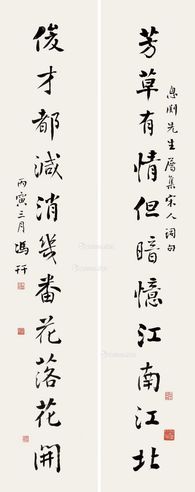 芳草有情但暗憶江南江北
息園先生屬集宋人詞句
俊才都減消幾番花落花開
丙寅三月馮幵